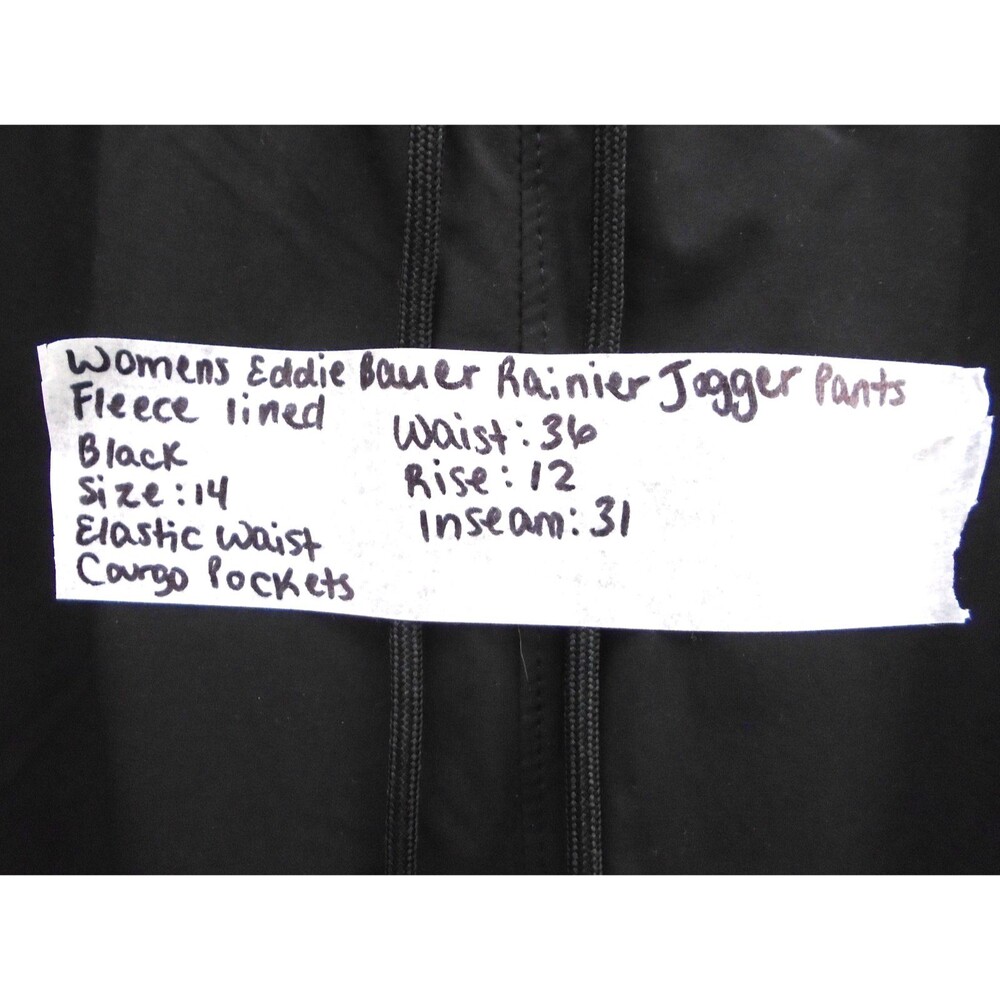 Womens Eddie Bauer Rainier Jogger Pants
Fleece lined
Black
Size: 14
Elastic Waist
Cargo Pockets
Waist: 36
Rise: 12
Inseam: 31